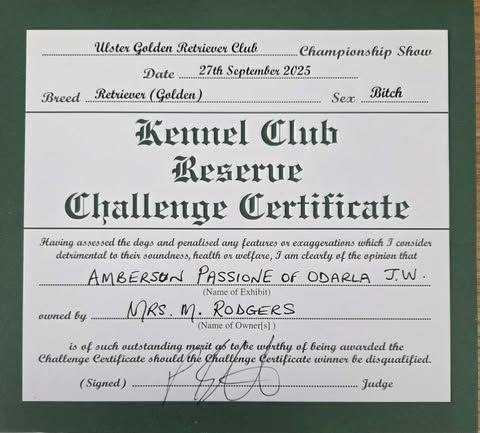 Ulster Golden Retriever Club Championship Show
Date 27th September 2025
Breed Retriever (Golden) Sex Bitch
Kennel Club
Reserve
Challenge Certificate
Having assessed the dogs and penalised any features or exaggerations which I consider
detrimental to their soundness, health or welfare, I am clearly of the opinion that
AMBERSUN PASSIONE OF ODARLA J.W.
(Name of Exhibit)
owned by MRS. M. RODGERS
(Name of Owner[s] )
is of such outstanding merit as to be worthy of being awarded the
Challenge Certificate should the Challenge Certificate winner be disqualified.
(Signed) Judge